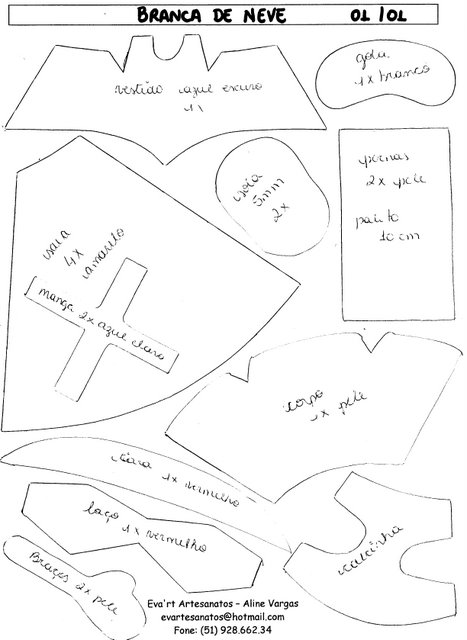 BRANCA DE NEVE 01/01
vestido azul escuro
1x
gola
1x branco
pernas
2x pele
palito
10 cm
5mm
2x
saia
4x
amarelo
manga 2x azul claro
corpo
1x pele
tiara 1x vermelho
laço
1x vermelho
calcinha
Braços 2x pele
Eva'rt Artesanatos – Aline Vargas
evartesanatos@hotmail.com
Fone: (51) 928.662.34